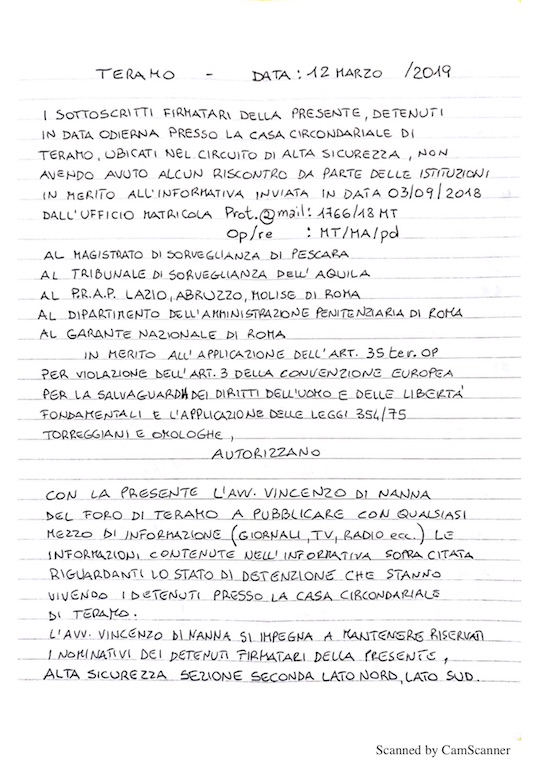 TERAMO - DATA: 12 MARZO /2019
I SOTTOSCRITTI FIRMATARI DELLA PRESENTE, DETENUTI
IN DATA ODIERNA PRESSO LA CASA CIRCONDARIALE DI
TERAMO, UBICATI NEL CIRCUITO DI ALTA SICUREZZA, NON
AVENDO AVUTO ALCUN RISCONTRO DA PARTE DELLE ISTITUZIONI
IN MERITO ALL'INFORMATIVA INVIATA IN DATA 03/09/2018
DALL'UFFICIO MATRICOLA Prot. @mail: 1766/18 MT
Op/re : MT/MA/pd
AL MAGISTRATO DI SORVEGLIANZA DI PESCARA
AL TRIBUNALE DI SORVEGLIANZA DELL'AQUILA
AL P.R.A.P. LAZIO, ABRUZZO, MOLISE DI ROMA
AL DIPARTIMENTO DELL'AMMINISTRAZIONE PENITENZIARIA DI ROMA
AL GARANTE NAZIONALE DI ROMA
IN MERITO ALL'APPLICAZIONE DELL'ART. 35 ter. OP
PER VIOLAZIONE DELL'ART. 3 DELLA CONVENZIONE EUROPEA
PER LA SALVAGUARDIA DEI DIRITTI DELL'UOMO E DELLE LIBERTÀ
FONDAMENTALI E L'APPLICAZIONE DELLE LEGGI 354/75
TORREGGIANI E OMOLOGHE,
AUTORIZZANO
CON LA PRESENTE L'AVV. VINCENZO DI NANNA
DEL FORO DI TERAMO A PUBBLICARE CON QUALSIASI
MEZZO DI INFORMAZIONE (GIORNALI, TV, RADIO ecc.) LE
INFORMAZIONI CONTENUTE NELL'INFORMATIVA SOPRA CITATA
RIGUARDANTI LO STATO DI DETENZIONE CHE STANNO
VIVENDO I DETENUTI PRESSO LA CASA CIRCONDARIALE
DI TERAMO.
L'AVV. VINCENZO DI NANNA SI IMPEGNA A MANTENERE RISERVATI
I NOMINATIVI DEI DETENUTI FIRMATARI DELLA PRESENTE,
ALTA SICUREZZA SEZIONE SECONDA LATO NORD, LATO SUD.
Scanned by CamScanner